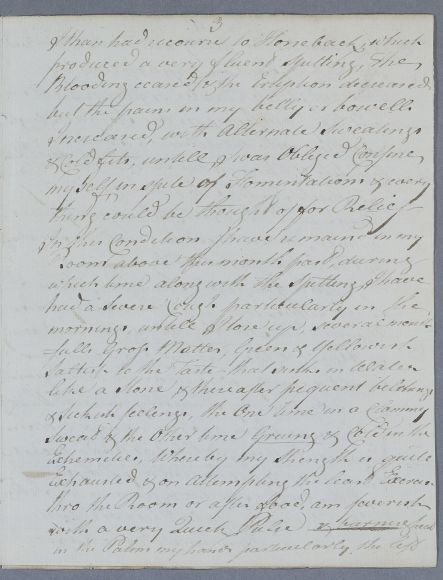 3
I than had recourse to Stoneback, which
produced a very fluent spitting, The
Blooding ceased, & the Eruption decreased
but the pains in my belly or bowells
Increased, with Alternate Sweatings
& Cold fits, untill I was Obliged Confine
my self in spite of Fomentations & every
thing could be thought of for Relief
In this Condition I have remained in my
Room above this month past, during
which time along with the Spitting, I have
had a Severe Cough particularly in the
mornings, untill I bore up, several mouth
fulls Gross Matter, Green & Yellowish
Saltish to the Taste that sinks in Water
like a Stone & thereafter frequent belchings
& sickish feelings, the One time in a Clammy
Sweat & the Other time Gruing & Cold in the
Extremities, Whereby my strength is quite
Exhausted & on Attempting the least Exercise
thro the Room or after food, am feverish
with a very Quick Pulse &
in the Palms my hands particularly the left